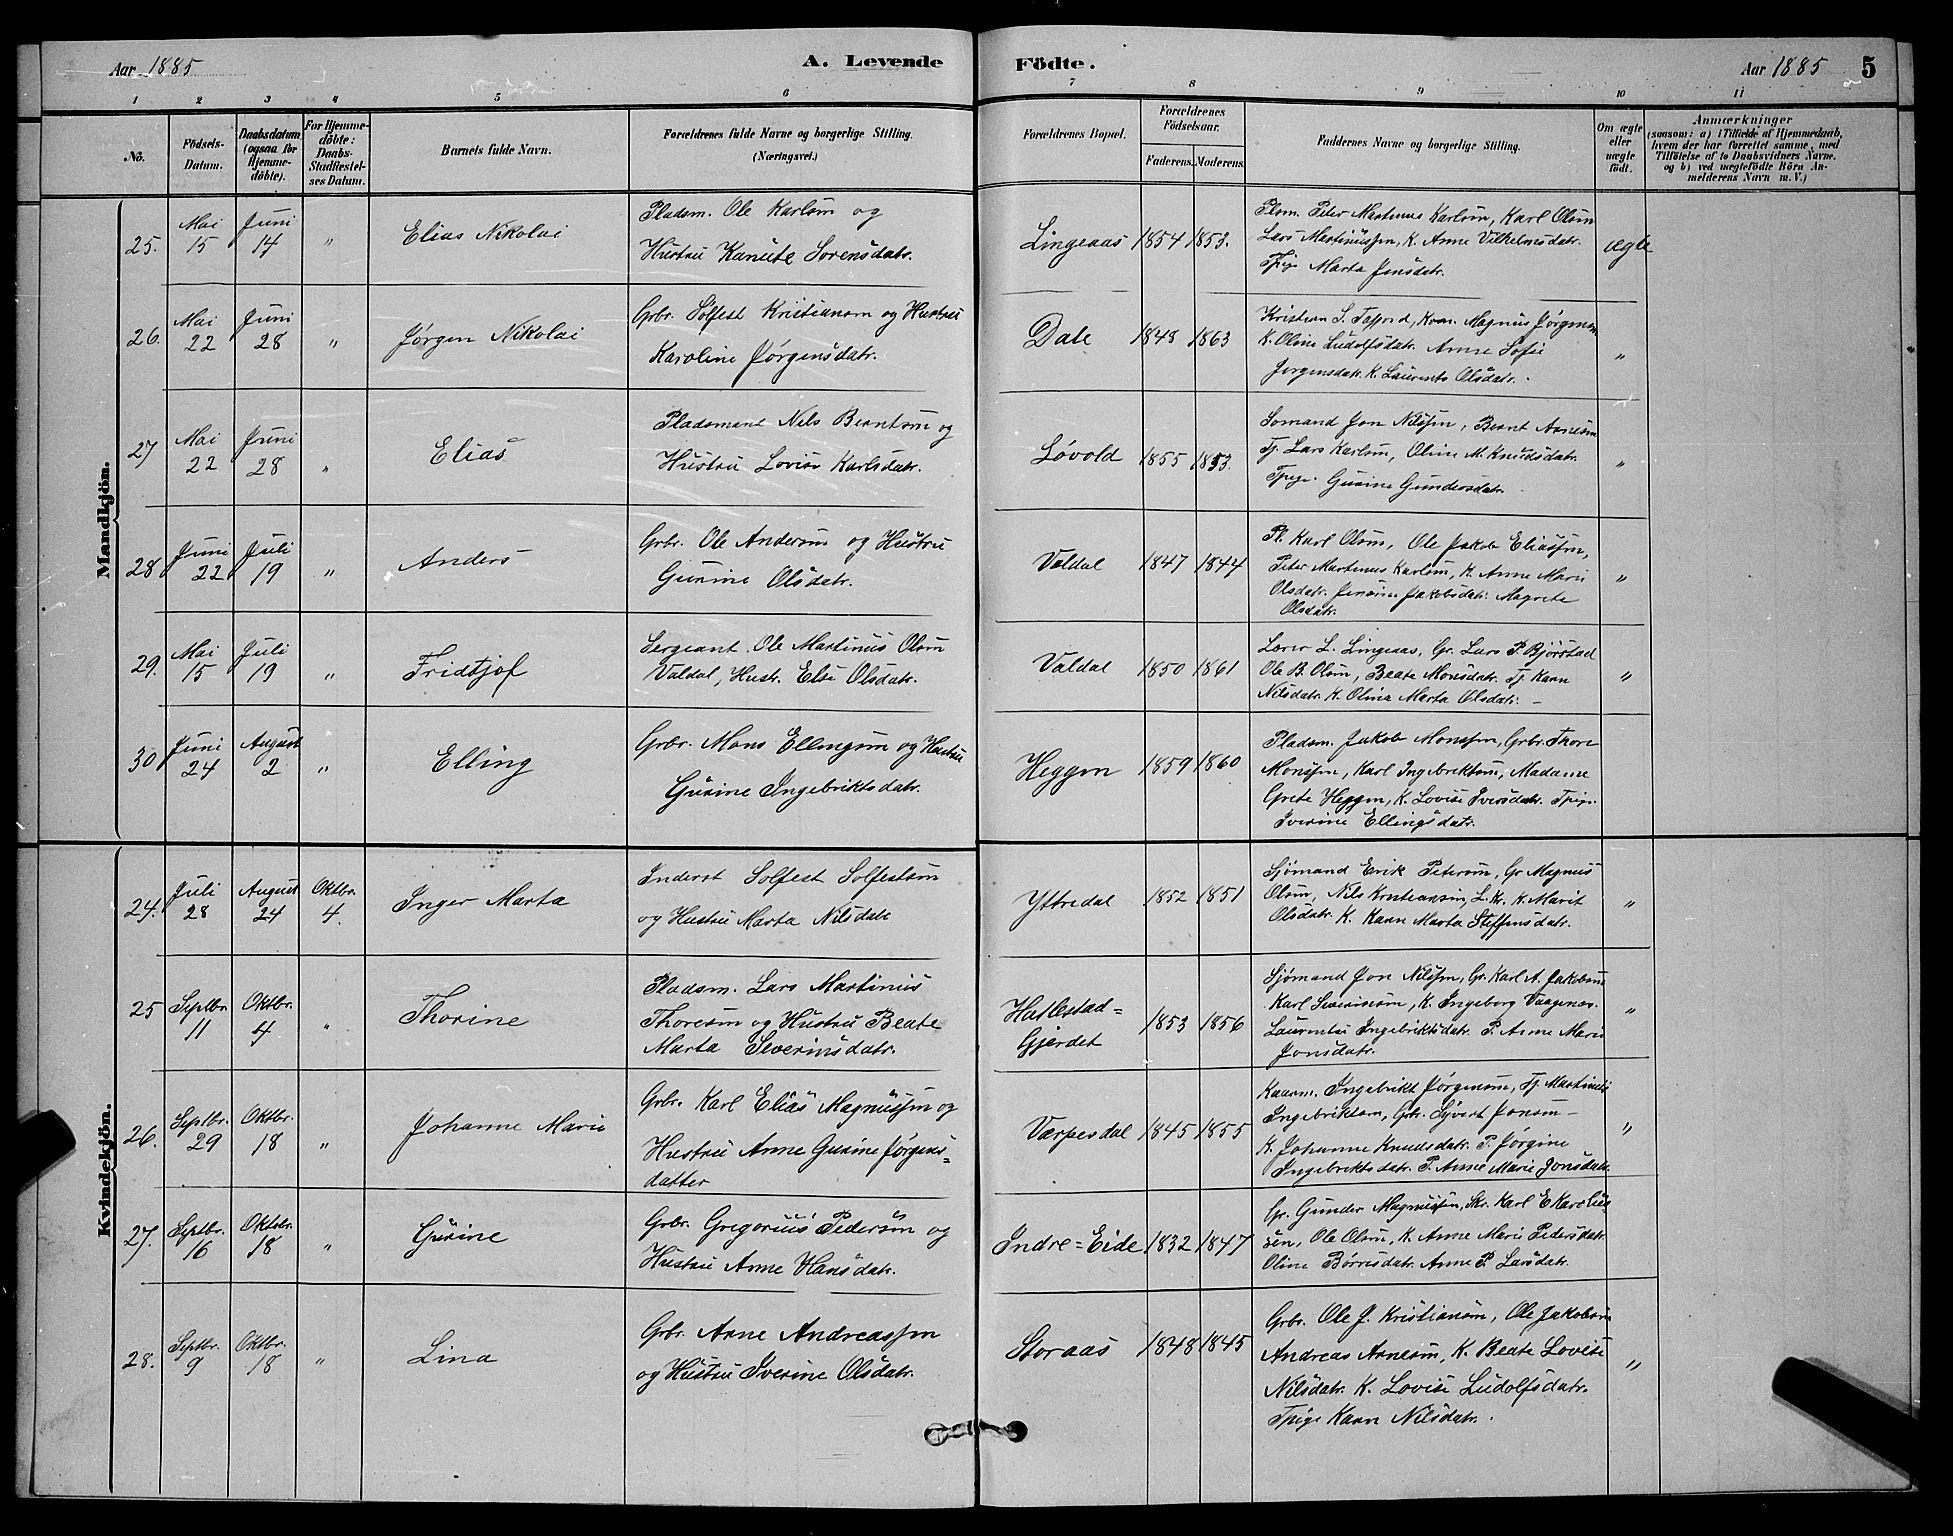 Aar 1885
A. Levende
Födte.
Aar 1885
5
1 2 3 4 5 6 7 8 9 10 11
No.
Födsels-
Datum.
Daabsdatum
(ogsaa for
Hjemme-
döbte).
For Hjemme-
döbte:
Daabs-
Stadfæstel-
ses Datum.
Barnets fulde Navn.
Forældrenes fulde Navne og borgerlige Stilling.
(Næringsvei.)
Forældrenes Bopæl.
Forældrenes
Födselsaar.
Faderens. Moderens.
Faddernes Navne og borgerlige Stilling.
Om ægte
eller
uægte
födt.
Anmærkninger
(saasom: a) i Tilfælde af Hjemmedaab,
hvem der har forrettet samme, med
Tilföielse af to Daabsvidners Navne.
og b) ved uægtefödte Börn An-
melderens Navn m. V.)
Mandkjön.
25.
Mai
15
Juni
14
"
Elias Nikolai
Pladsm. Ole Karlsen og
Hustru Kanute Sørensdatr.
Lingeaas
1854
1853.
Plsm. Peter Martenus Karlsen, Karl Olsen
Lars Martinussen, K. Anne Vilhelmsdatr.
Tpige Marta Jensdatr.
ægte
26.
Mai
22
Juni
28
"
Jørgen Nikolai
Grbr. Sølfest Kristiansen og Hustru
Karoline Jørgensdatr.
Dale
1848
1863
Kristian S. Tafjord, Magnus Jørgensen
K. Oline Ludolfsdatr. Anne Sofie
Jørgensdatr. K. Laurents Olsdatr.
"
27
Mai
22
Juni
28
"
Elias
Pladsmand Nils Berntsen og
Hustru Lovise Karlsdatr.
Løvold
1855
1853.
Sømand Jon Nilssen, Bernt Arnesen
Tj. Lars Karlsen, Oline M. Knudsdatr.
Tpige. Gurine Gundersdatr.
"
28
Juni
22
Juli
19
"
Anders
Grbr. Ole Andersen og Hustru
Gurine Olsdatr.
Valdal
1847
1844
Pl. Karl Olsen, Ole Jakob Eliassen,
Peter Martenus Karlsen, K. Anne Marie
Olsdatr. Jensine Jakobsdatr. Magrete
Olsdatr.
"
29.
Mai
15
Juli
19
"
Fridtjof
Sergeant. Ole Martinus Olsen
Valdal, Hustr. Else Olsdatr.
Valdal
1850
1861
Lærer L. Lingeaas, Gr. Lars P. Bjørstad
Ole B. Olsen, Beate Monsdatr. Tj. Karen
Nilsdatr. K. Olina Marta Olsdatr. –
"
30
Juni
24
August
2
"
Elling
Grbr. Mons Ellingsen og Hustru
Gurine Ingebriktsdatr.
Heggen
1859
1860
Pladsm. Jakob Monssen, Grbr. Thore
Monssen, Karl Ingebriktsen, Madame
Grete Heggen, K. Lovise Iversdatr. Tpige.
Iverine Ellingsdatr.
"
Kvindekjön.
24.
Juli
28
August
24
Oktbr.
4.
Inger Marta
Inderst Solfest Solfestsen
og Hustru Marta Nilsdatr
Yttredal
1852
1851
Sjømand Erik Petersen, Gr. Magnus
Olsen, Nils Kristiansen, L. K. K. Marit
Olsdatr. K. Karen Marta Steffensdatr.
"
25
Septbr.
11
Oktbr.
4
"
Thorine
Pladsm. Lars Martinus
Thoresen og Hustru Beate
Marta Severinsdatr.
Hatlestad=
Gjerdet
1853
1856
Sjømand Jon Nilssen, Gr. Karl A. Jakobsen
Karl Severinsen, K. Ingeborg Vaagenes.
Laurentse Ingebriktsdatr. P. Anne Marie
Jonsdatr.
"
26.
Septbr.
29
Oktbr.
18
"
Johanne Marie
Grbr. Karl Elias Magnussen og
Hustru Anne Gurine Jørgens=
datter
Værpesdal
1845
1855
Kaarm. Ingebrikt Jørgensen, Tj. Martinus
Ingebriktsen, Grbr. Syvert Jonsen –
K. Johanne Knudsdatr. P. Jørgine
Ingebriktsdatr. P. Anne Marie Jonsdatr.
"
27.
Septbr.
16
Oktobr.
18
"
Gurine
Grbr. Gregorius Pedersen og
Hustru Anne Hansdatr.
Indre=Eide
1832
1847
Gr. Gunder Magnussen, Skr. Karl E Karolius
sen, Ole Olsen, K. Anne Marie Pedersdatr.
Oline Børresdatr. Anne P. Larsdatr.
28.
Septbr.
9
Oktbr.
18
"
Lina
Grbr. Arne Andreassen
og Hustru Iverine Olsdatr.
Storaas
1848
1845
Grbr. Ole J. Kristiansen, Ole Jakobsen
Andreas Arnesen, K. Beate Lovise
Nilsdatr. K. Lovise Ludolfsdatr.
Tpige Karen Nilsdatr.
"